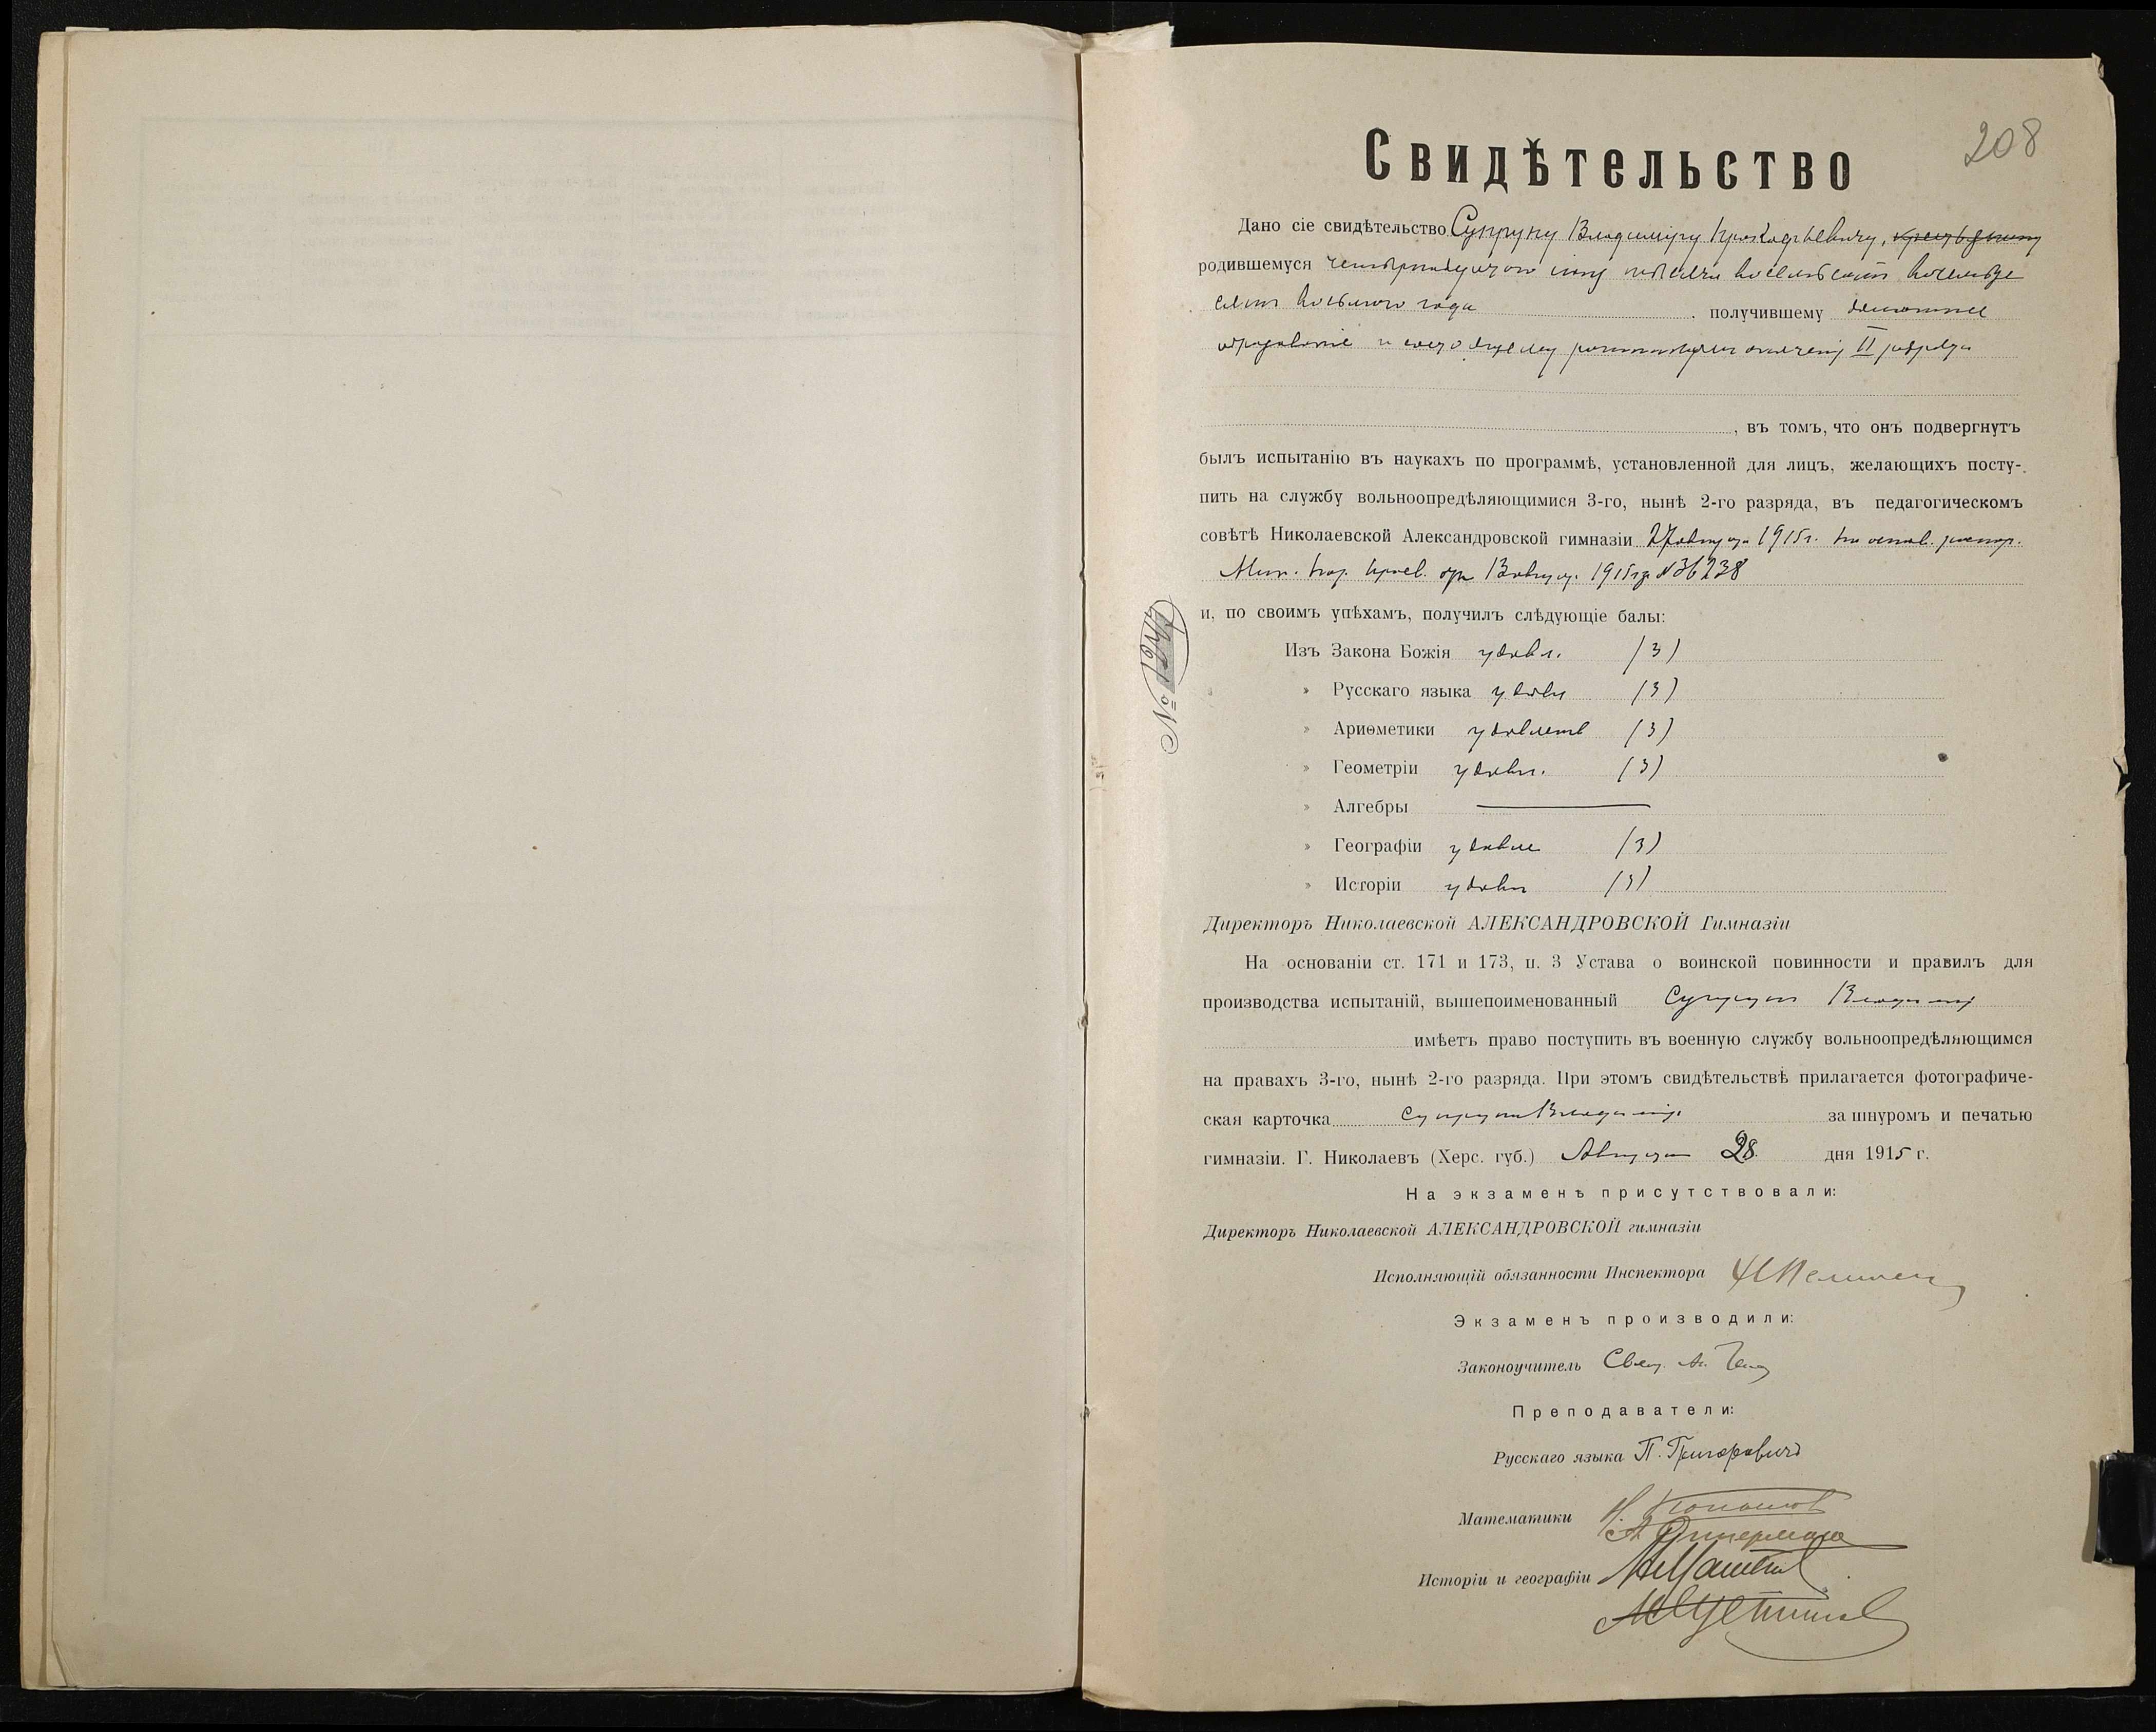 208
Свидѣтельство
Дано сіе свидѣтельство Супруну Владиміру
родившемуся мѣсяца тысяча восемьсотъ восемьде
сятъ восьмого года получившему домашнее
образованіе и II разряда
, въ томъ, что онъ подвергнутъ
былъ испытанію въ наукахъ по программѣ, установленной для лицъ, желающихъ посту-
пить на службу вольноопредѣляющимися 3-го, нынѣ 2-го разряда, въ педагогическомъ
совѣтѣ Николаевской Александровской гимназіи 27 августа 1915 г. на основ. распор.
Мин. Нар. Просв. отъ 13 августа 1915 г. № 36238
и, по своимъ упѣхамъ, получилъ слѣдующіе балы:
№
Изъ Закона Божія удовл. (3)
» Русскаго языка удовл (3)
» Ариѳметики удовлетв (3)
» Геометріи удовл. (3)
» Алгебры
» Географіи удовле (3)
» Исторіи удовл (3)
Директоръ Николаевской АЛЕКСАНДРОВСКОЙ Гимназіи
На основаніи ст. 171 и 173, п. 3 Устава о воинской повинности и правилъ для
производства испытаній, вышепоименованный Супрунъ Владиміръ
имѣетъ право поступить въ военную службу вольноопредѣляющимся
на правахъ 3-го, нынѣ 2-го разряда. При этомъ свидѣтельствѣ прилагается фотографиче-
ская карточка Супруна Владиміра за шнуромъ и печатью
гимназіи. Г. Николаевъ (Херс. губ.) Августа 28 дня 1915 г.
На экзаменѣ присутствовали:
Директоръ Николаевской АЛЕКСАНДРОВСКОЙ гимназіи
Исполняющій обязанности Инспектора
Экзаменъ производили:
Законоучитель Свящ. А.
Преподаватели:
Русскаго языка П. Григоровичъ
Математики Н.
А.
Исторіи и географіи